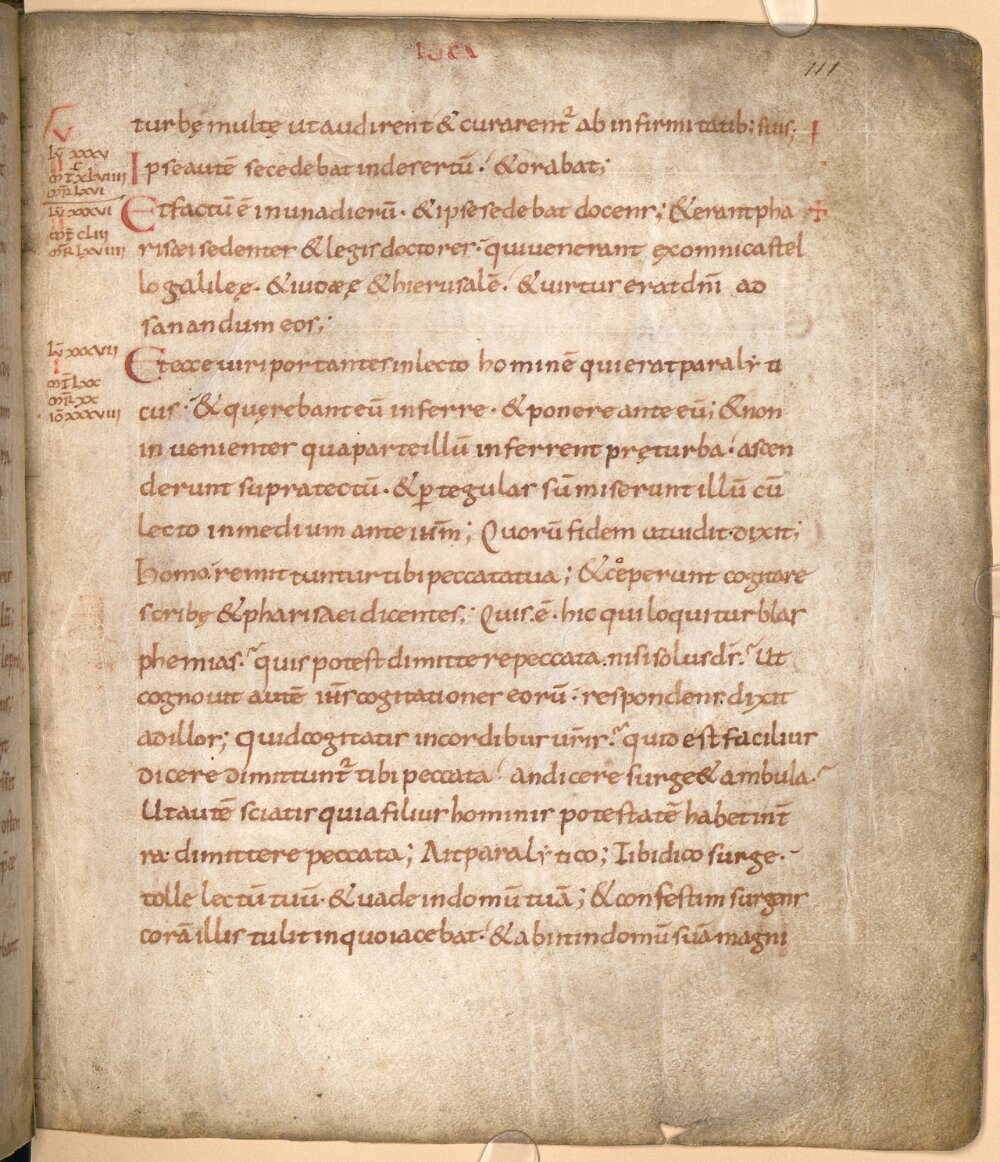 LUCA
111
turbę multę ut audirent & curarent᷑ ab infirmitatib; suis;
V
lū xxxv
mr̄ lxvi
Ipse autē secedebat in desertū. & orabat;
lū xxxvi
mt̄ cliii
mr̄ lxviiii
Et factū ē in una dierū. & ipse sedebat docens; & erant pha
risaei sedentes & legis doctores. qui venerant ex omni castel
lo galileę. & iudaeę & hierusalē. & uirtus erat dn̄i ad
sanandum eos;
lū xxxvii
mt̄ lxx
mr̄ xx
iō xxxviii
Et ecce uiri portantes in lecto hominē qui erat paraly ti
cus. & quęrebant eū inferre. & ponere ante eū; & non
in uenientes qua parte illū inferrent prę turba. ascen
derunt supra tectū. & ꝑ tegulas sūmiserunt illū cū
lecto in medium ante ih̄m; Quorū fidem ut uidit. dixit;
Homo. remittuntur tibi peccata tua; & cœperunt cogitare
scribę & pharisaei dicentes; Quis. ē. hic qui loquitur blas
phemias. quis potest dimittere peccata. nisi solus ds̄. Ut
cognouit autē ih̄s cogitationes eorū. respondens. dixit
ad illos; quid cogitatis in cordibus ur̄is. quid est facilius
dicere dimittunt᷑ tibi peccata. an dicere surge & ambula.
Ut autē sciatis quia filius hominis potestatē habet in t̄
ra. dimittere peccata; Ait paraly tico; Tibi dico surge.
tolle lectū tuū. & uade in domū tuā; & confestim surgens
corā illis tulit in quo iacebat. & abiit in domū suā magni